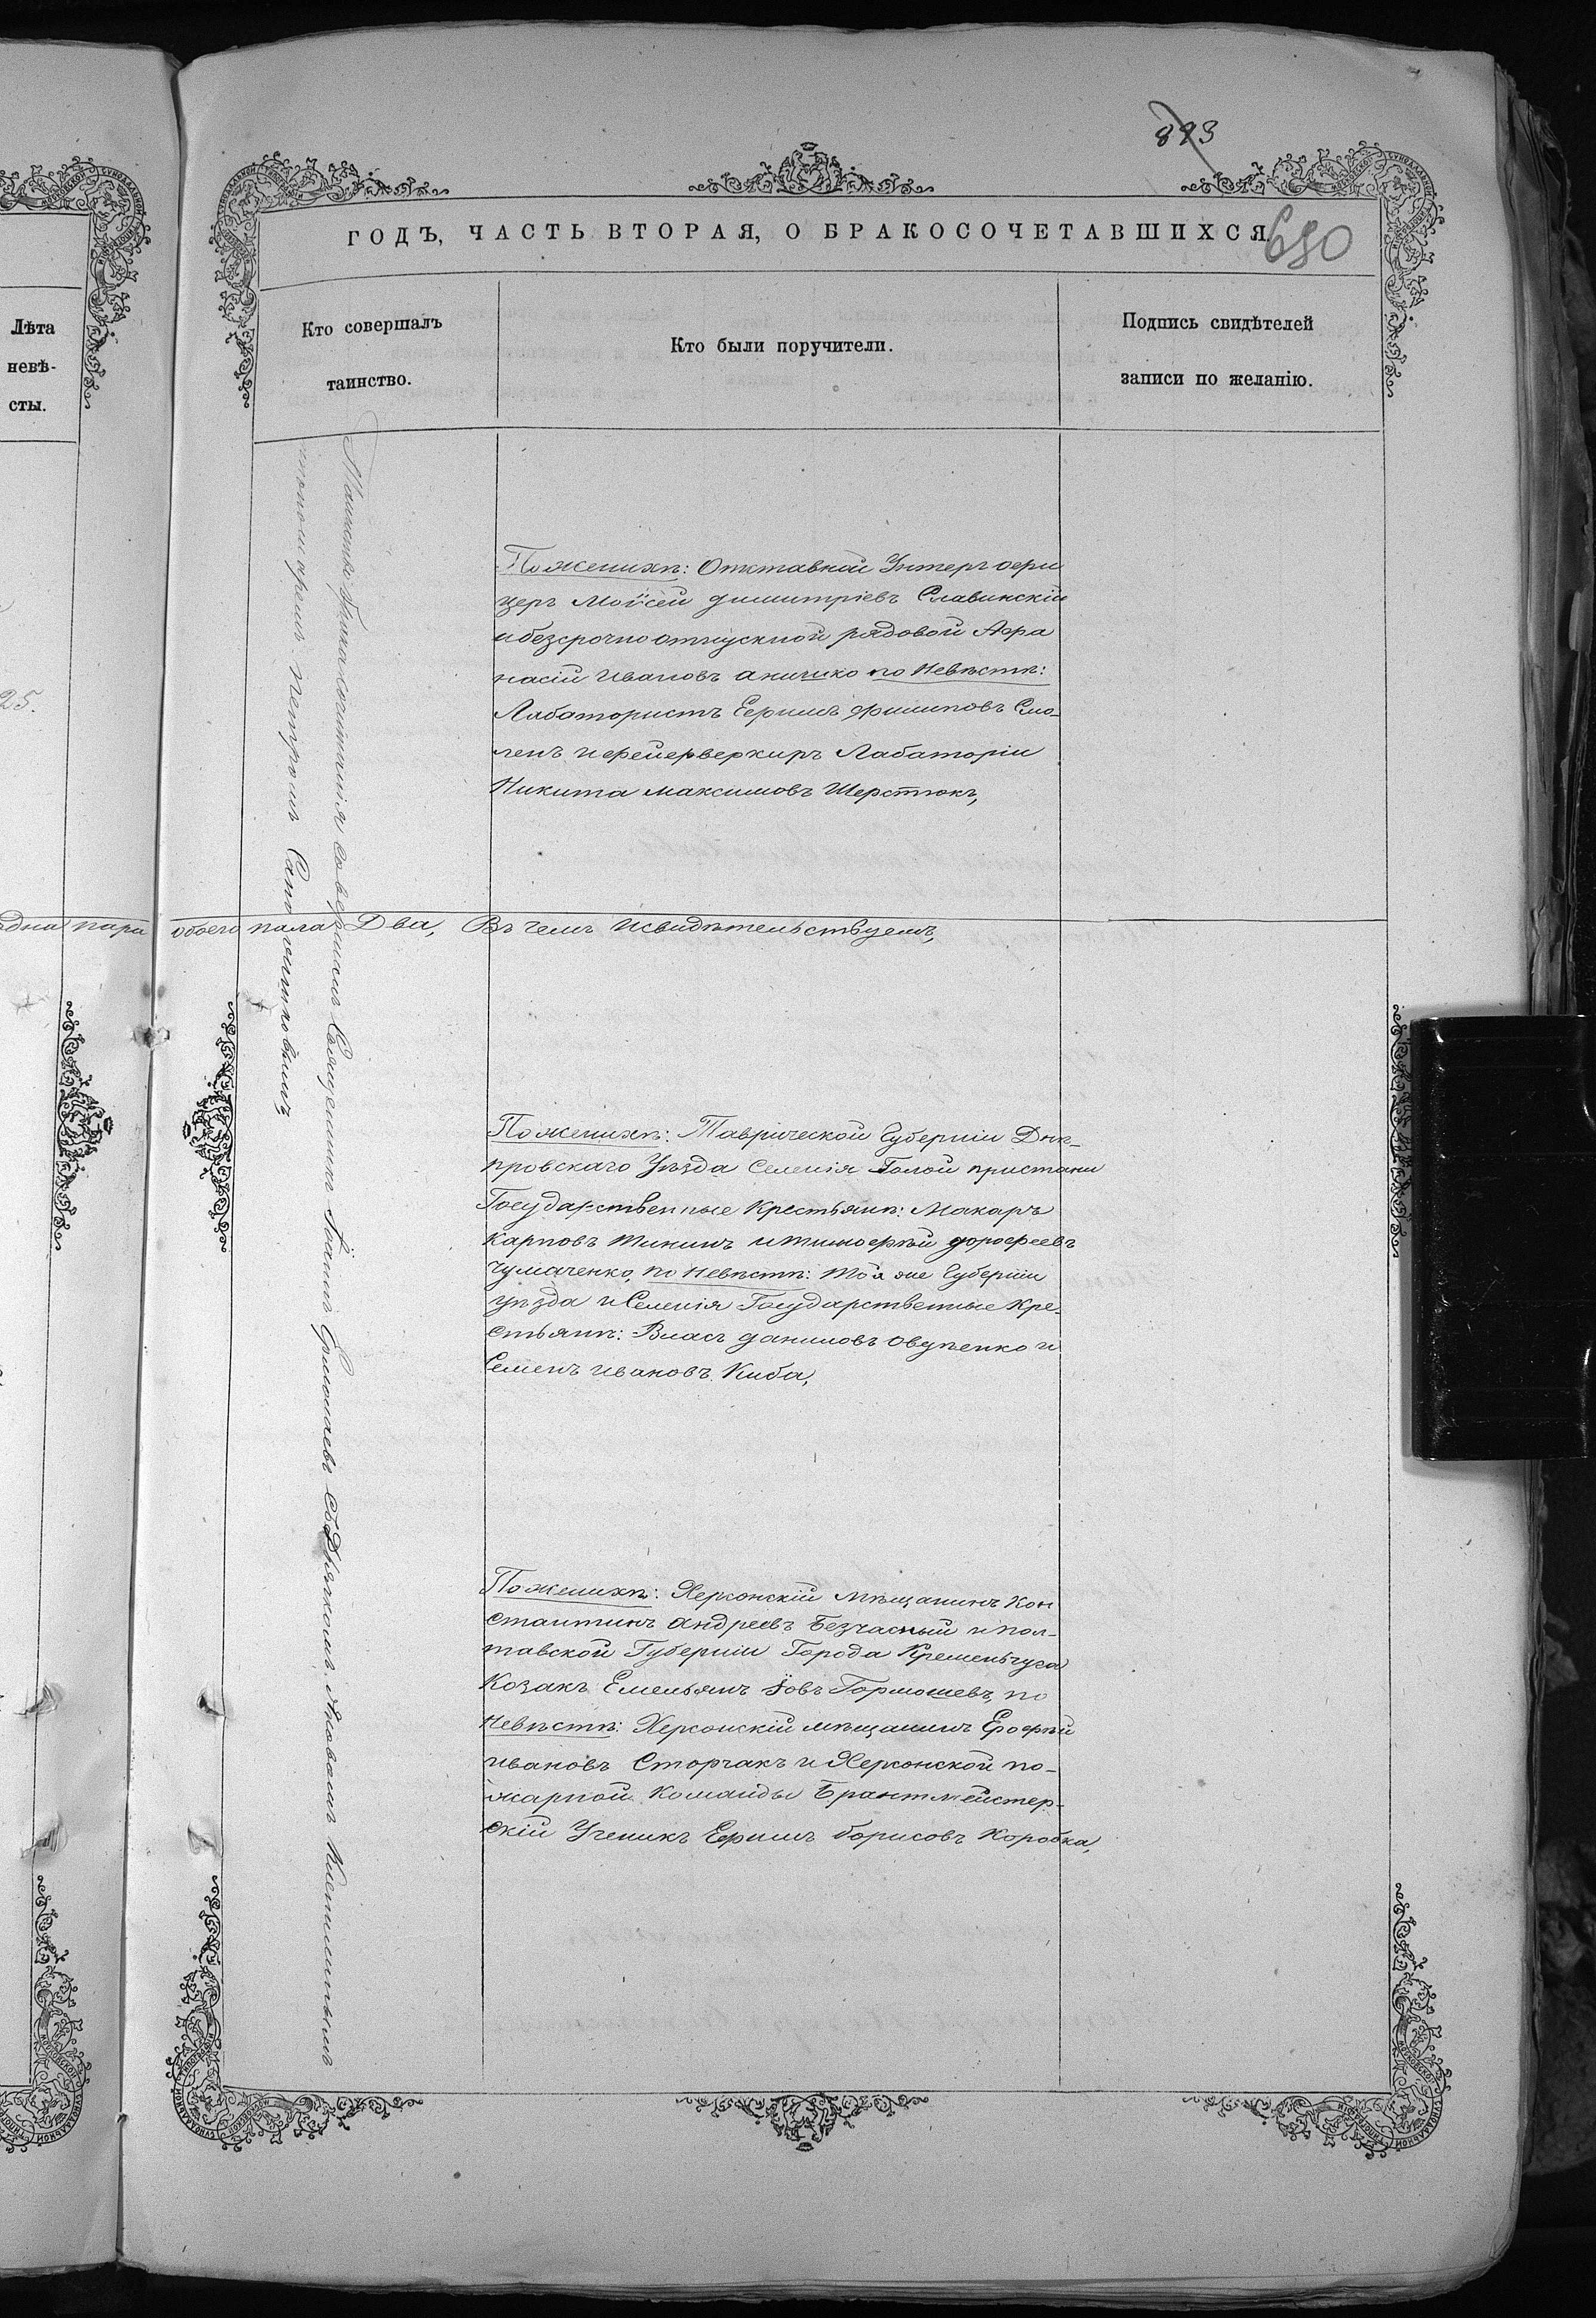 893
ГОДЪ, ЧАСТЬ ВТОРАЯ, О БРАКОСОЧЕТАВШИХСЯ.
680
Лѣта
невѣ-
сты.
Кто совершалъ
таинство.
Кто были поручители.
Подпись свидѣтелей
записи по желанію.
25.
Таинство бракосочетанія совершилъ Священникъ Іоаннъ Ермолаевъ Съ Дьячкомъ Яковомъ
пономаремъ Петромъ Сапожниковымъ
По женихѣ: Отставной Унтеръ офи
церъ Моѵсей Димитріевъ Славинскій
и безсрочно отпускной рядовой Афа
насій Ивановъ Аничко по Невѣстѣ:
Лабатористъ Ефимъ Филиповъ Смо-
ленъ и фейерверкиръ Лабаторіи
Никита Максимовъ Шерстюкъ,
Одна пара обоего пала Два, Въ чемъ и свидѣтельствуемъ,
По женихѣ: Таврической Губерніи Днѣ-
провскаго Уѣзда Селенія Голой пристани
Государственные Крестьянѣ: Макаръ
Карповъ Мининъ и Тимофѣй Дорофеевъ
Чумаченко, по Невѣстѣ: Тоя же Губерніи
уѣзда и Селенія Государственные Кре-
стьянѣ: Власъ Даниловъ Овденко и
Семенъ Ивановъ Киба,
По женихѣ: Херсонскій мѣщанинъ Кон
стантинъ Андреевъ Безчасный и Пол-
тавской Губерніи Города Кременьчуга
Козакъ Емельянъ Іовъ Гормошевъ, по
Невѣстѣ: Херсонскій мѣщанинъ Ерофѣй
Ивановъ Сторчакъ и Херсонской по-
жарной Команды Брантмейстер-
скій Ученикъ Ефимъ Борисовъ Коробка,